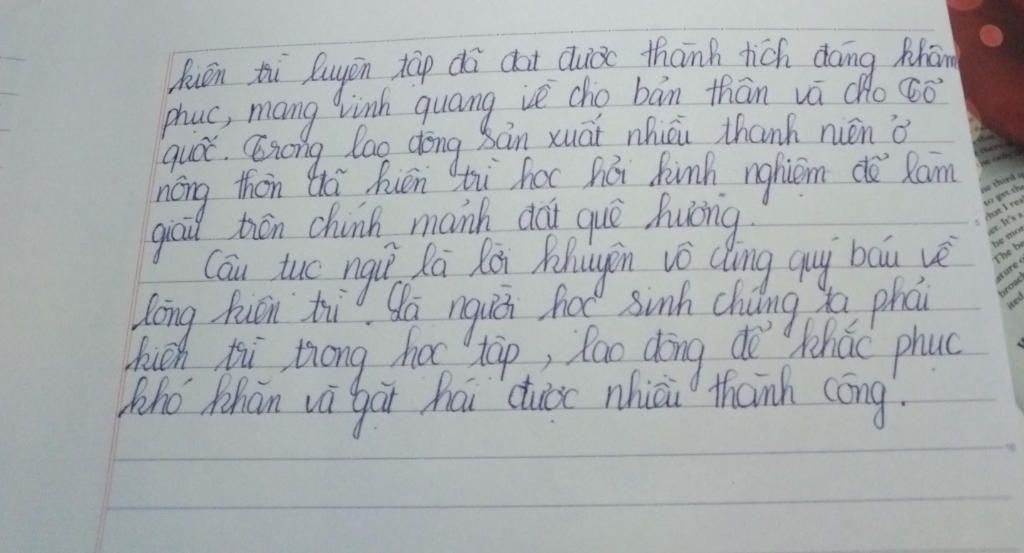 kiên trì luyện tập đã đạt được thành tích đáng khâm
phục, mang vinh quang về cho bản thân và cho Tổ
quốc. Trong lao động sản xuất nhiều thanh niên ở
nông thôn đã kiên trì học hỏi kinh nghiệm để làm
giàu trên chính mảnh đất quê hương.
Câu tục ngữ là lời khuyên vô cùng quý báu về
lòng kiên trì. Là người học sinh chúng ta phải
kiên trì trong học tập, lao động để khắc phục
khó khăn và gặt hái được nhiều thành công.